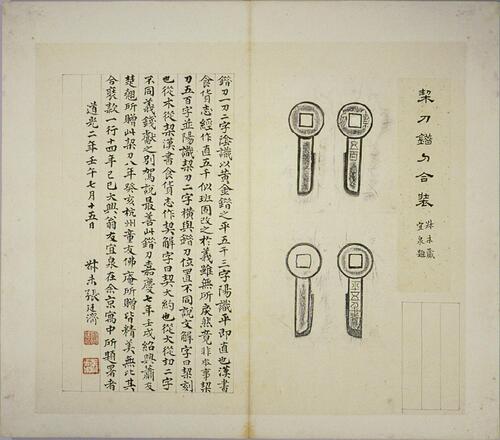 栔刀錯刀合裝
叔未藏
宜泉題
五百
平五千
錯刀一刀二字陰識以黃金錯之平五千三字陽識平即直也漢書
食貨志經作直五千似班固改之於義雖無所戾然竟非本事栔
刀五百字並陽識栔刀二字橫與錯刀位置不同說文解字曰栔刻
也從木從㓞漢書食貨志作契解字曰契大約也從大從㓞二字
不同義錢獻之別駕說最善此錯刀嘉慶七年壬戌紹興蕭友
楚翹所贈此栔刀八年癸亥杭州童友佛庵所贈皆精美無比其
合裝款一行十四年己巳大興翁友宜泉在余京寓中所題署者
道光二年壬午七月十五日
叔未張廷濟